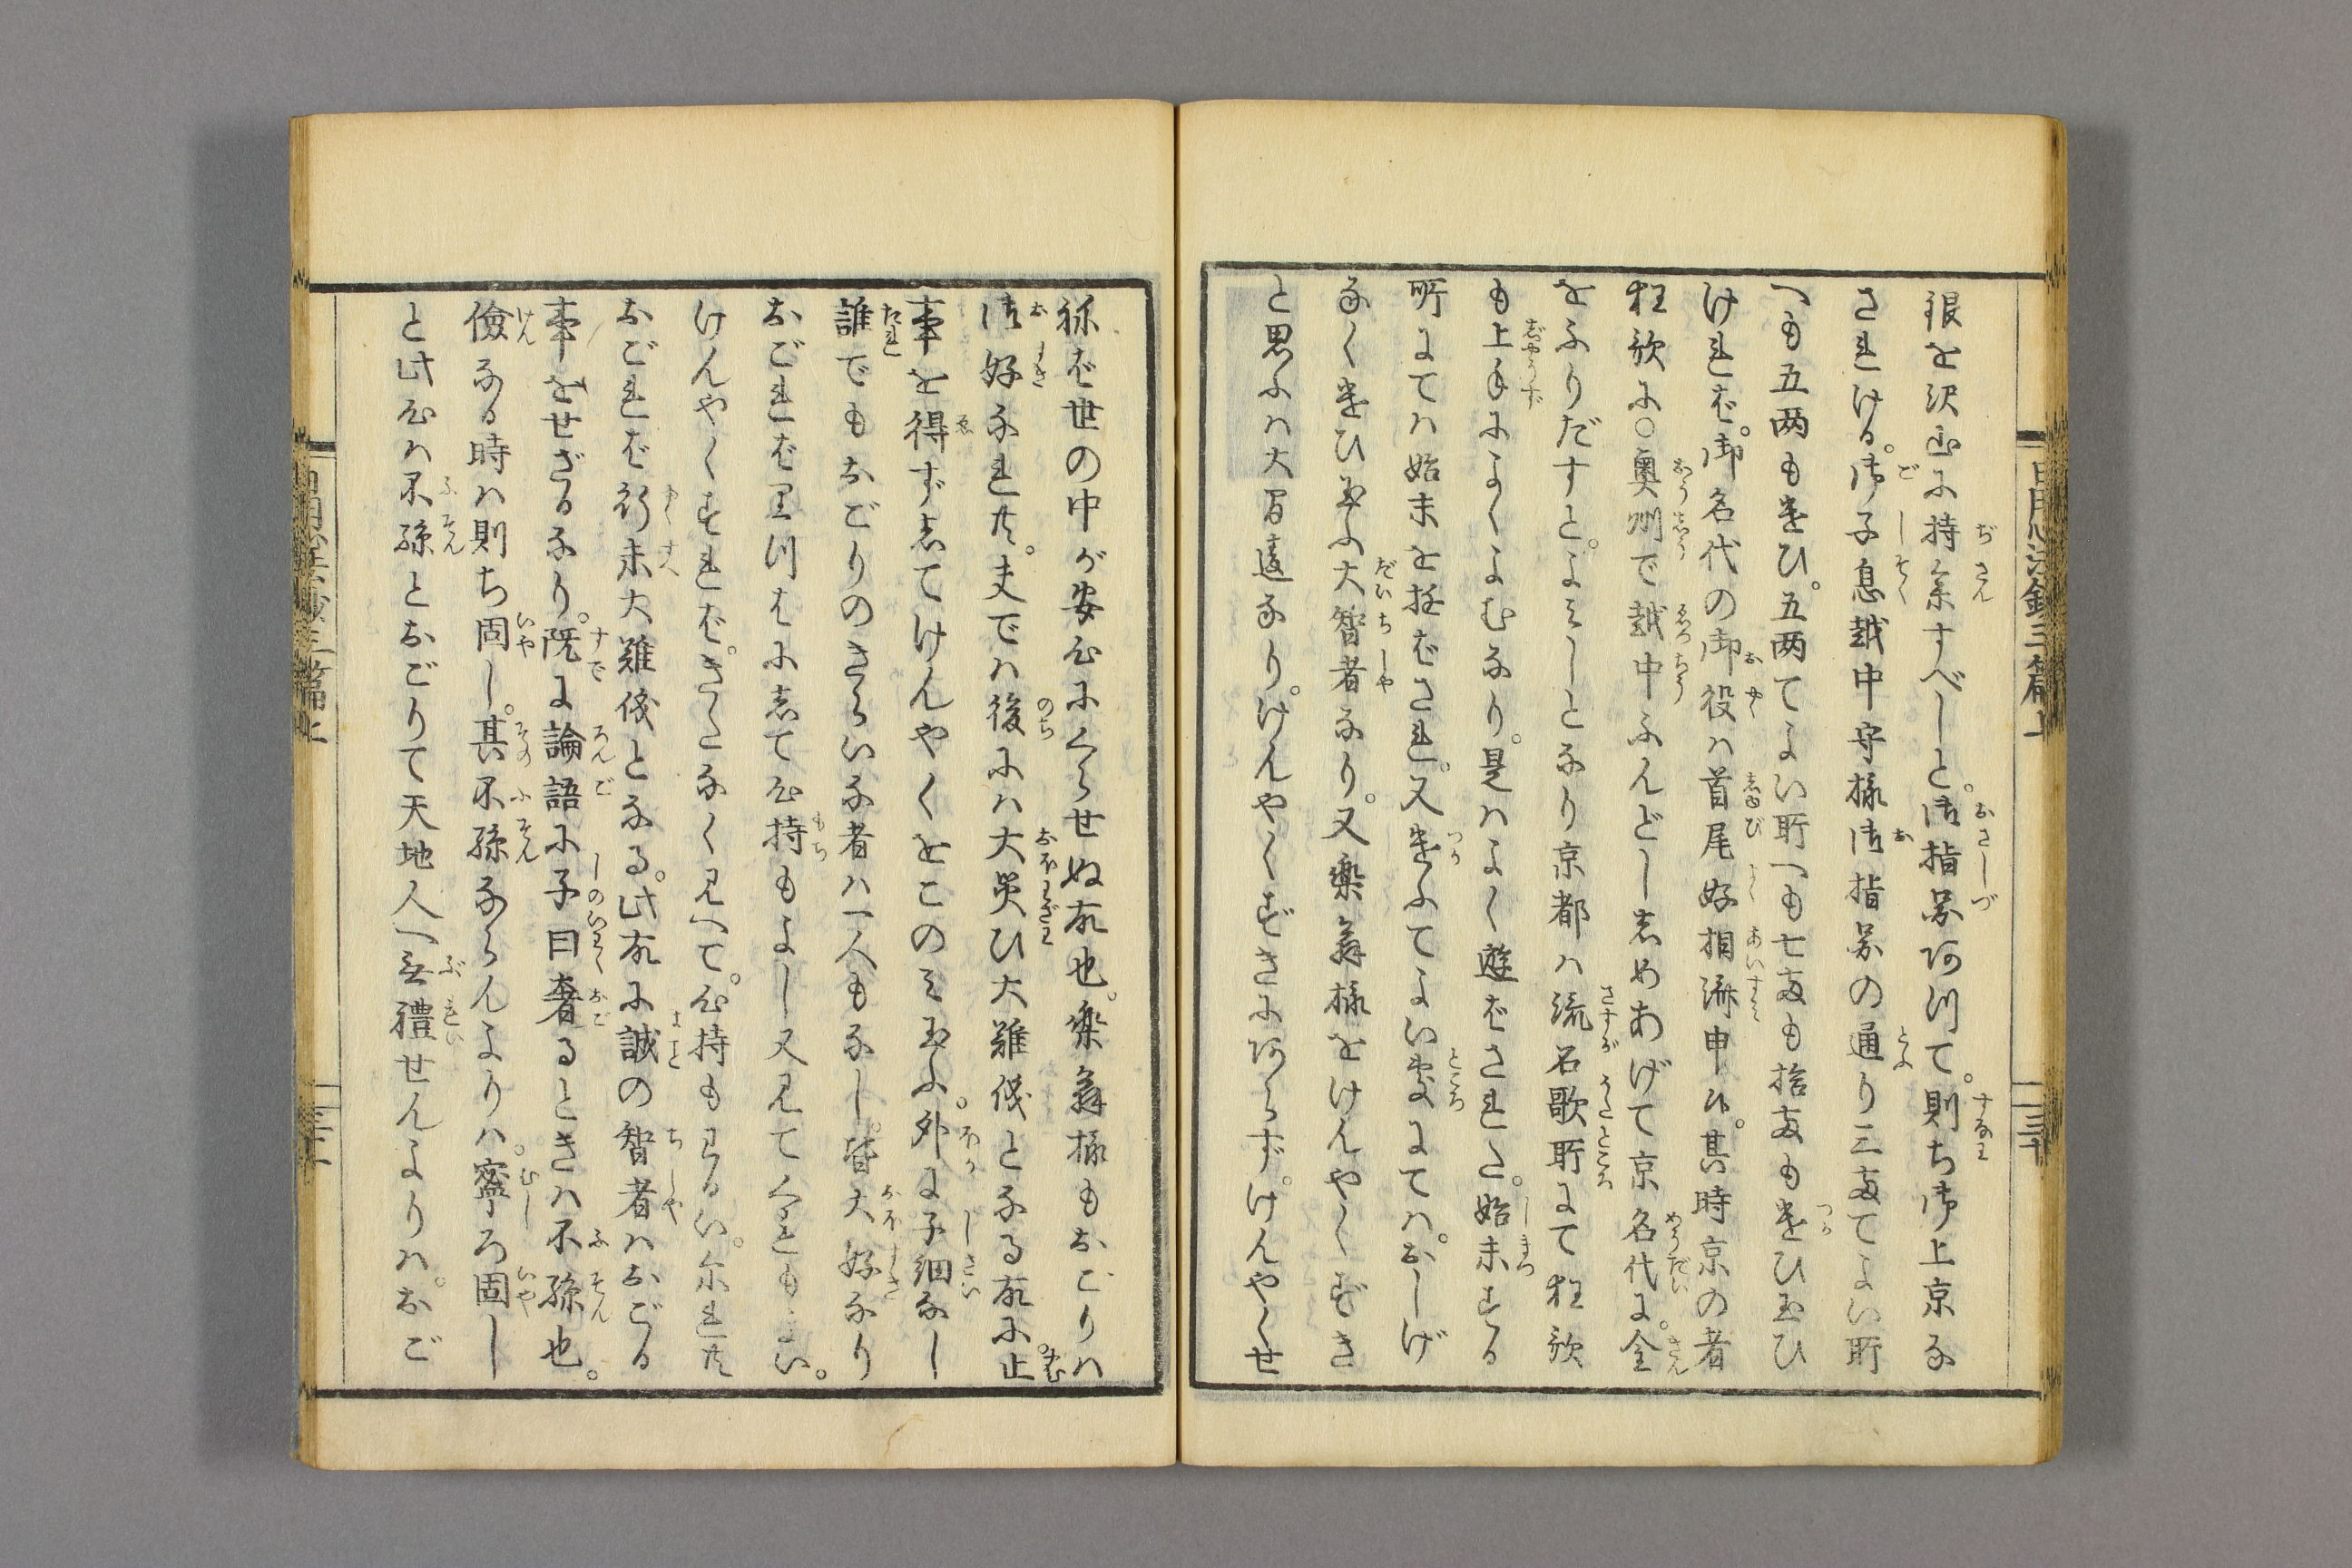 銀を沢山に持参すべしと。御指図有つて。則ち御上京な
されける。御子息越中守様御指図の通り三両てよい所
へも五両も遣ひ。五両てよい所へも七両も拾両も遣ひ玉ひ
ければ。御名代の御役ハ首尾好相済申候。其時京の者
狂歌に○奥州で越中ふんどししめあげて京名代に。金
をふりだすと。よみしとなり京都ハ流石歌所にて狂歌
も上手によくよむなり。是ハよく遊ばされた。始末する
所にてハ始末を遊ばされ。又遣ふてよい処にてハ。おしげ
なく遣ひ玉ふ大智者なり。又楽翁様をけんやくずき
と思ふハ大間違なり。けんやくずきにあらず。けんやくせ
ねば世の中が安心にくらせぬ故也。楽翁様もおごりハ
御好なれ共。夫でハ後にハ大災ひ大難儀となる故に。止
事を得ずしてけんやくをこのみ玉ふ。外に子細なし
誰でもおごりのきらいな者ハ一人もなし。皆大好なり
おごれば里つはにして心持もよし又見てくれもよい。
けんやくすれば。きたなく見へて。心持もわるい。尓れ共
おごれば行末大難儀となる。此故に誠の智者ハおごる
事をせざるなり。既に論語に子曰奢るときハ不孫也。
儉なる時ハ則ち固し。其不孫ならんよりハ。寧ろ固し
と此心ハ不孫とおごりて天地人へ無禮せんよりハ。おご